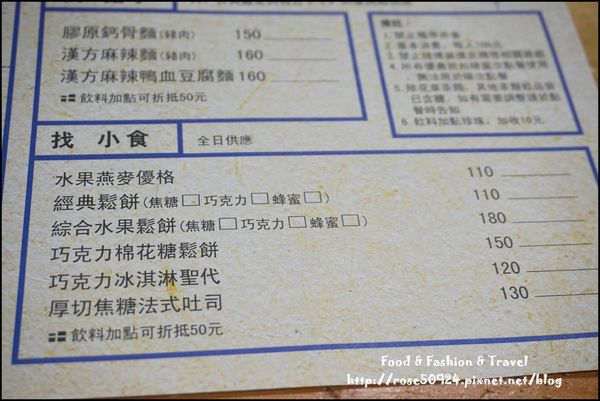 膠原鈣骨麵(豬肉) 150
漢方麻辣麵(豬肉) 160
漢方麻辣鴨血豆腐麵 160
飲料加點可折抵50元
1.禁止攜帶外食
2.基本消費，每人100元
6.飲料加點珍珠，加收10元
找 小食 全日供應
水果燕麥優格 110
經典鬆餅(焦糖□巧克力□蜂蜜□) 110
綜合水果鬆餅(焦糖□巧克力□蜂蜜□) 180
巧克力棉花糖鬆餅 150
巧克力冰淇淋聖代 120
厚切焦糖法式吐司 130
飲料加點可折抵50元
Food & Fashion & Travel
http://rose50924.pixnet.net/blog